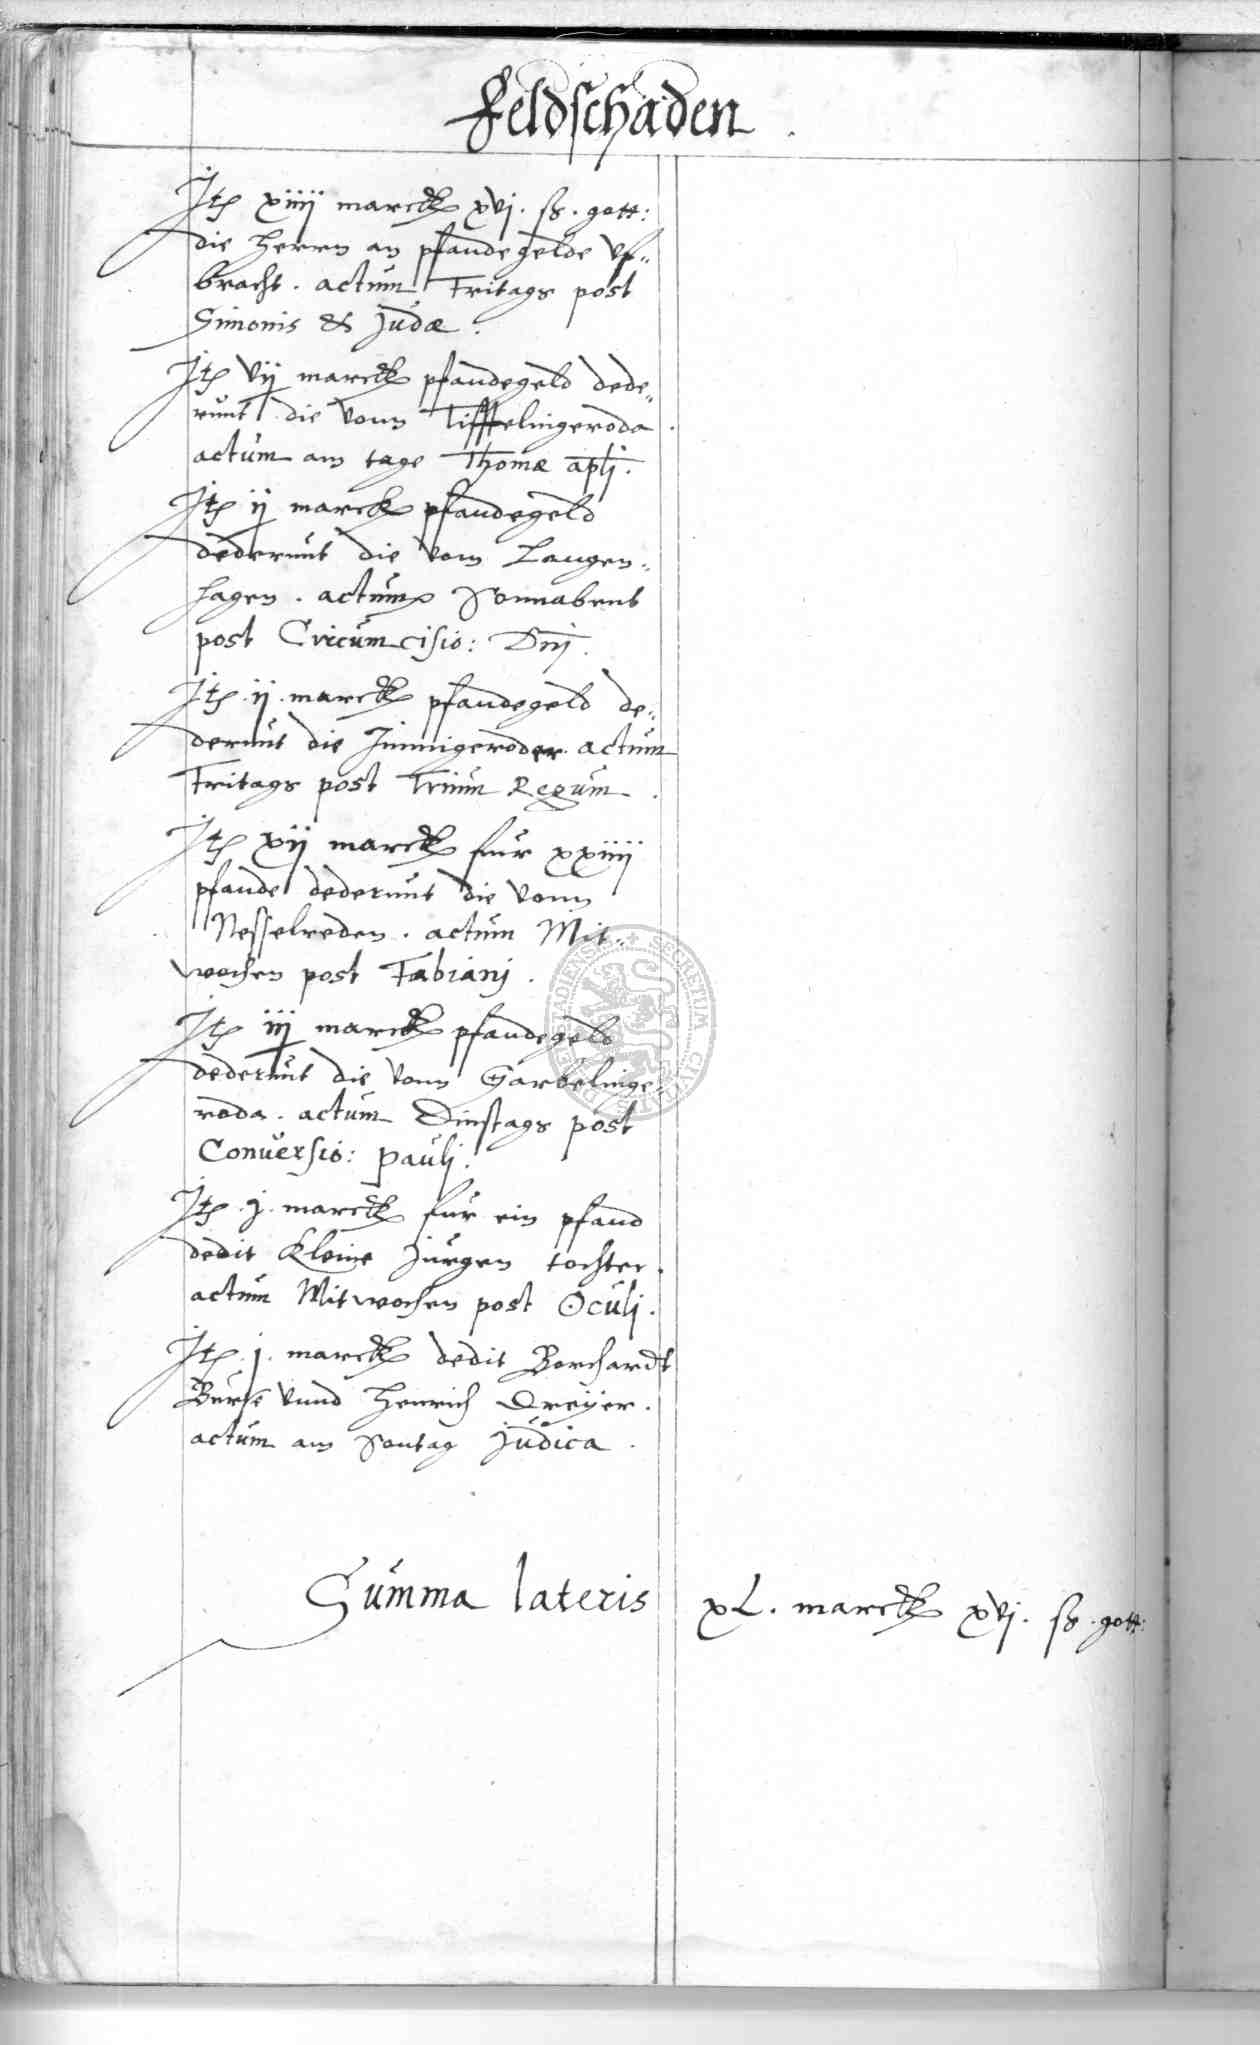 Feldschaden.
Itē xiiij marck xvj. ß. gott:
die herrn an pfandegelde vf„
bracht. actum Fritags post
Simonis & Judæ.
Itē vij marck pfandegeld dede„
runt die vonn Tifftelingeroda.
actum am tage Thomæ apłi.
Itē ij marck pfandegeld
dederunt die vom Langen„
hagen. actum Sonnabent
post Circumcisio: Dnj.
Itē .ij. marck pfandegeld de„
derunt die Immigeroder. actum
Fritags post Trium Regum.
Itē xij marck fur xxiiij
pfande dederunt die vonn
Nesselreden. actum Mit„
wochen post Fabianj.
Itē iij marck pfandegeld
dederunt die vonn Gerbelinge„
roda. actum Dinstags post
Conuersio: Paulj.
Itē .j. marck fur ein pfand
dedit Kleine Jurgen tochter.
actum Mitwochen post Oculj.
Itē .j. marck dedit Borchardt
Burse vnnd Henrich Dreyer.
actum am Sontag Judica.
Summa lateris xL. marck xvj. ß. gott:
SECRETUM CIVITATIS DUDERSTADIENSIS